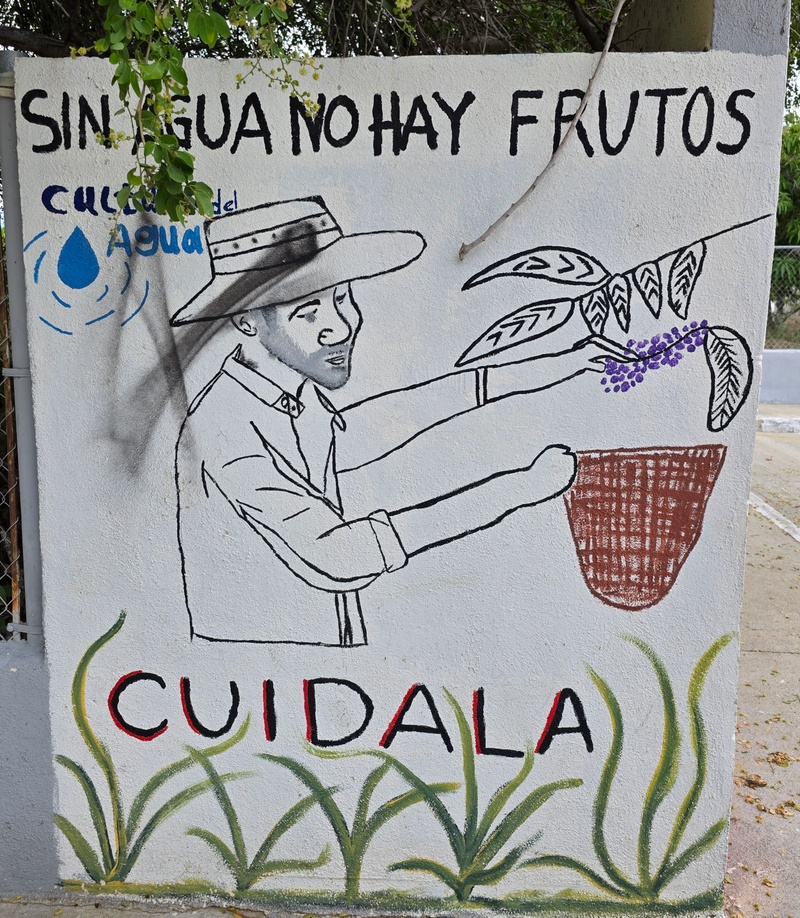 SIN AGUA NO HAY FRUTOS
del
Agua
CUIDALA